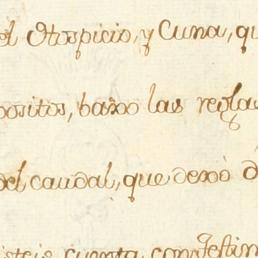 el Hospicio, y Cuna, qu
positos, baxo las reglas
del caudal, que dexó d
cuenta con